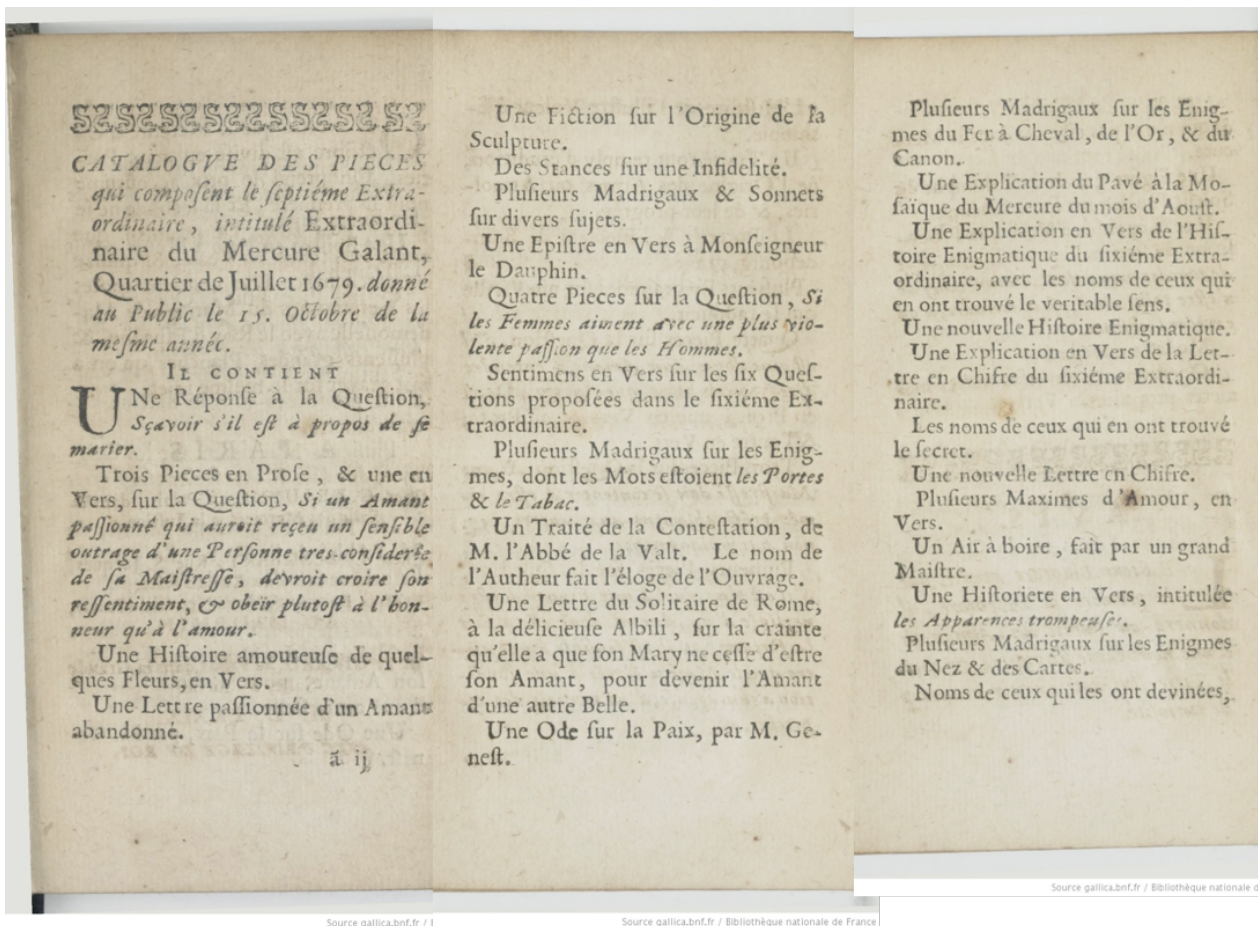 CATALOGVE DES PIECES
qui composent le septiéme Extra-
ordinaire, intitulé Extraordi-
naire du Mercure Galant,
Quartier de Juillet 1679. donné
au Public le 15. Octobre de la
mesme année.
IL CONTIENT
UNe Réponse à la Question,
Sçavoir s'il est à propos de se
marier.
Trois Pieces en Prose, & une en
Vers, sur la Question, Si un Amant
passionné qui auroit reçeu un sensible
outrage d'une Personne tres-considerée
de sa Maistresse, devroit croire son
ressentiment, & obeïr plutost à l'hon-
neur qu'à l'amour.
Une Histoire amoureuse de quel-
ques Fleurs, en Vers.
Une Lettre passionnée d'un Amant
abandonné.
ã ij
Une Fiction sur l'Origine de la
Sculpture.
Des Stances sur une Infidelité.
Plusieurs Madrigaux & Sonnets
sur divers sujets.
Une Epistre en Vers à Monseigneur
le Dauphin.
Quatre Pieces sur la Question, Si
les Femmes aiment avec une plus vio-
lente passion que les Hommes.
Sentimens en Vers sur les six Ques-
tions proposées dans le sixiéme Ex-
traordinaire.
Plusieurs Madrigaux sur les Enig-
mes, dont les Mots estoient les Portes
& le Tabac.
Un Traité de la Contestation, de
M. l'Abbé de la Valt. Le nom de
l'Autheur fait l'éloge de l'Ouvrage.
Une Lettre du Solitaire de Rome,
à la délicieuse Albili, sur la crainte
qu'elle a que son Mary ne cesse d'estre
son Amant, pour devenir l'Amant
d'une autre Belle.
Une Ode sur la Paix, par M. Ge-
nest.
Plusieurs Madrigaux sur les Enig-
mes du Fer à Cheval, de l'Or, & du
Canon.
Une Explication du Pavé à la Mo-
saïque du Mercure du mois d'Aoust.
Une Explication en Vers de l'His-
toire Enigmatique du sixiéme Extra-
ordinaire, avec les noms de ceux qui
en ont trouvé le veritable sens.
Une nouvelle Histoire Enigmatique.
Une Explication en Vers de la Let-
tre en Chifre du sixiéme Extraordi-
naire.
Les noms de ceux qui en ont trouvé
le secret.
Une nouvelle Lettre en Chifre.
Plusieurs Maximes d'Amour, en
Vers.
Un Air à boire, fait par un grand
Maistre.
Une Historiete en Vers, intitulée
les Apparences trompeuses.
Plusieurs Madrigaux sur les Enigmes
du Nez & des Cartes.
Noms de ceux qui les ont devinées,
Source gallica.bnf.fr /
Source gallica.bnf.fr / Bibliothèque nationale de France
Source gallica.bnf.fr / Bibliothèque nationale d